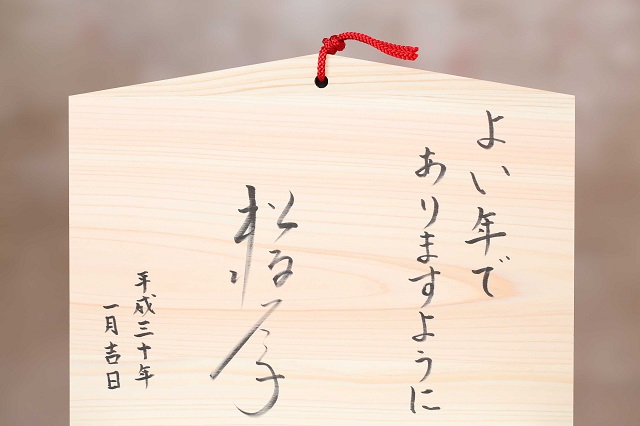 よい年で
ありますように
平成三十年
一月吉日